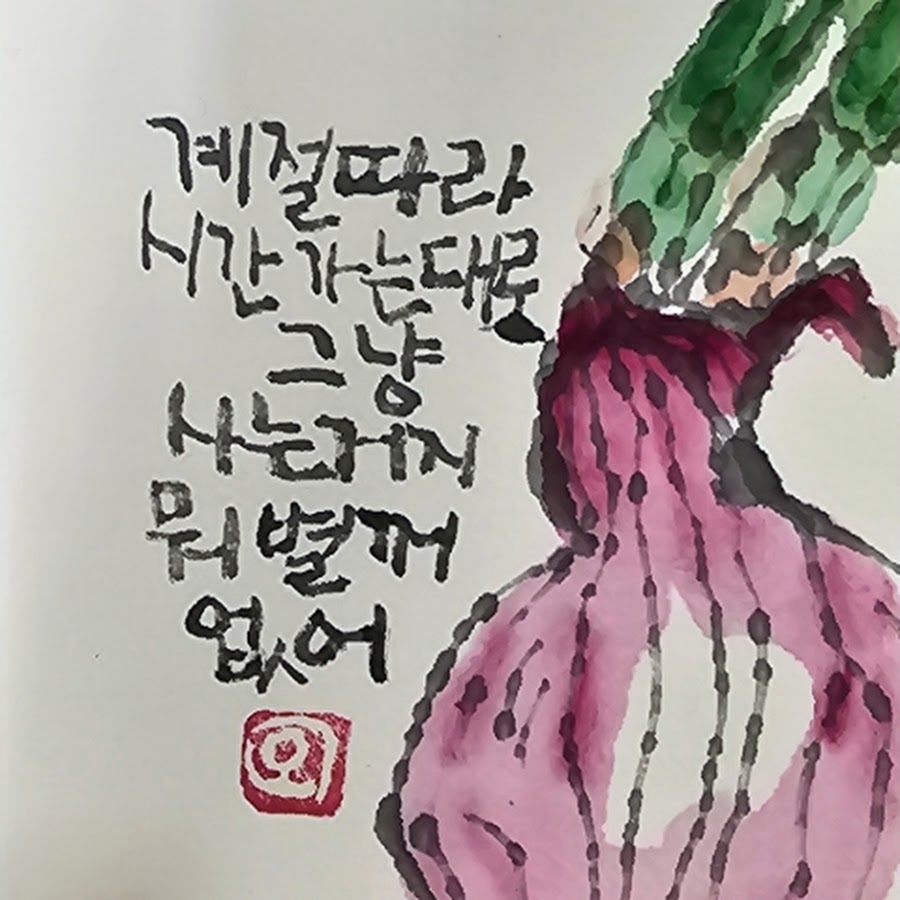 계절따라
시간 가는대로
그냥
사는거지
뭐 별꺼
없어